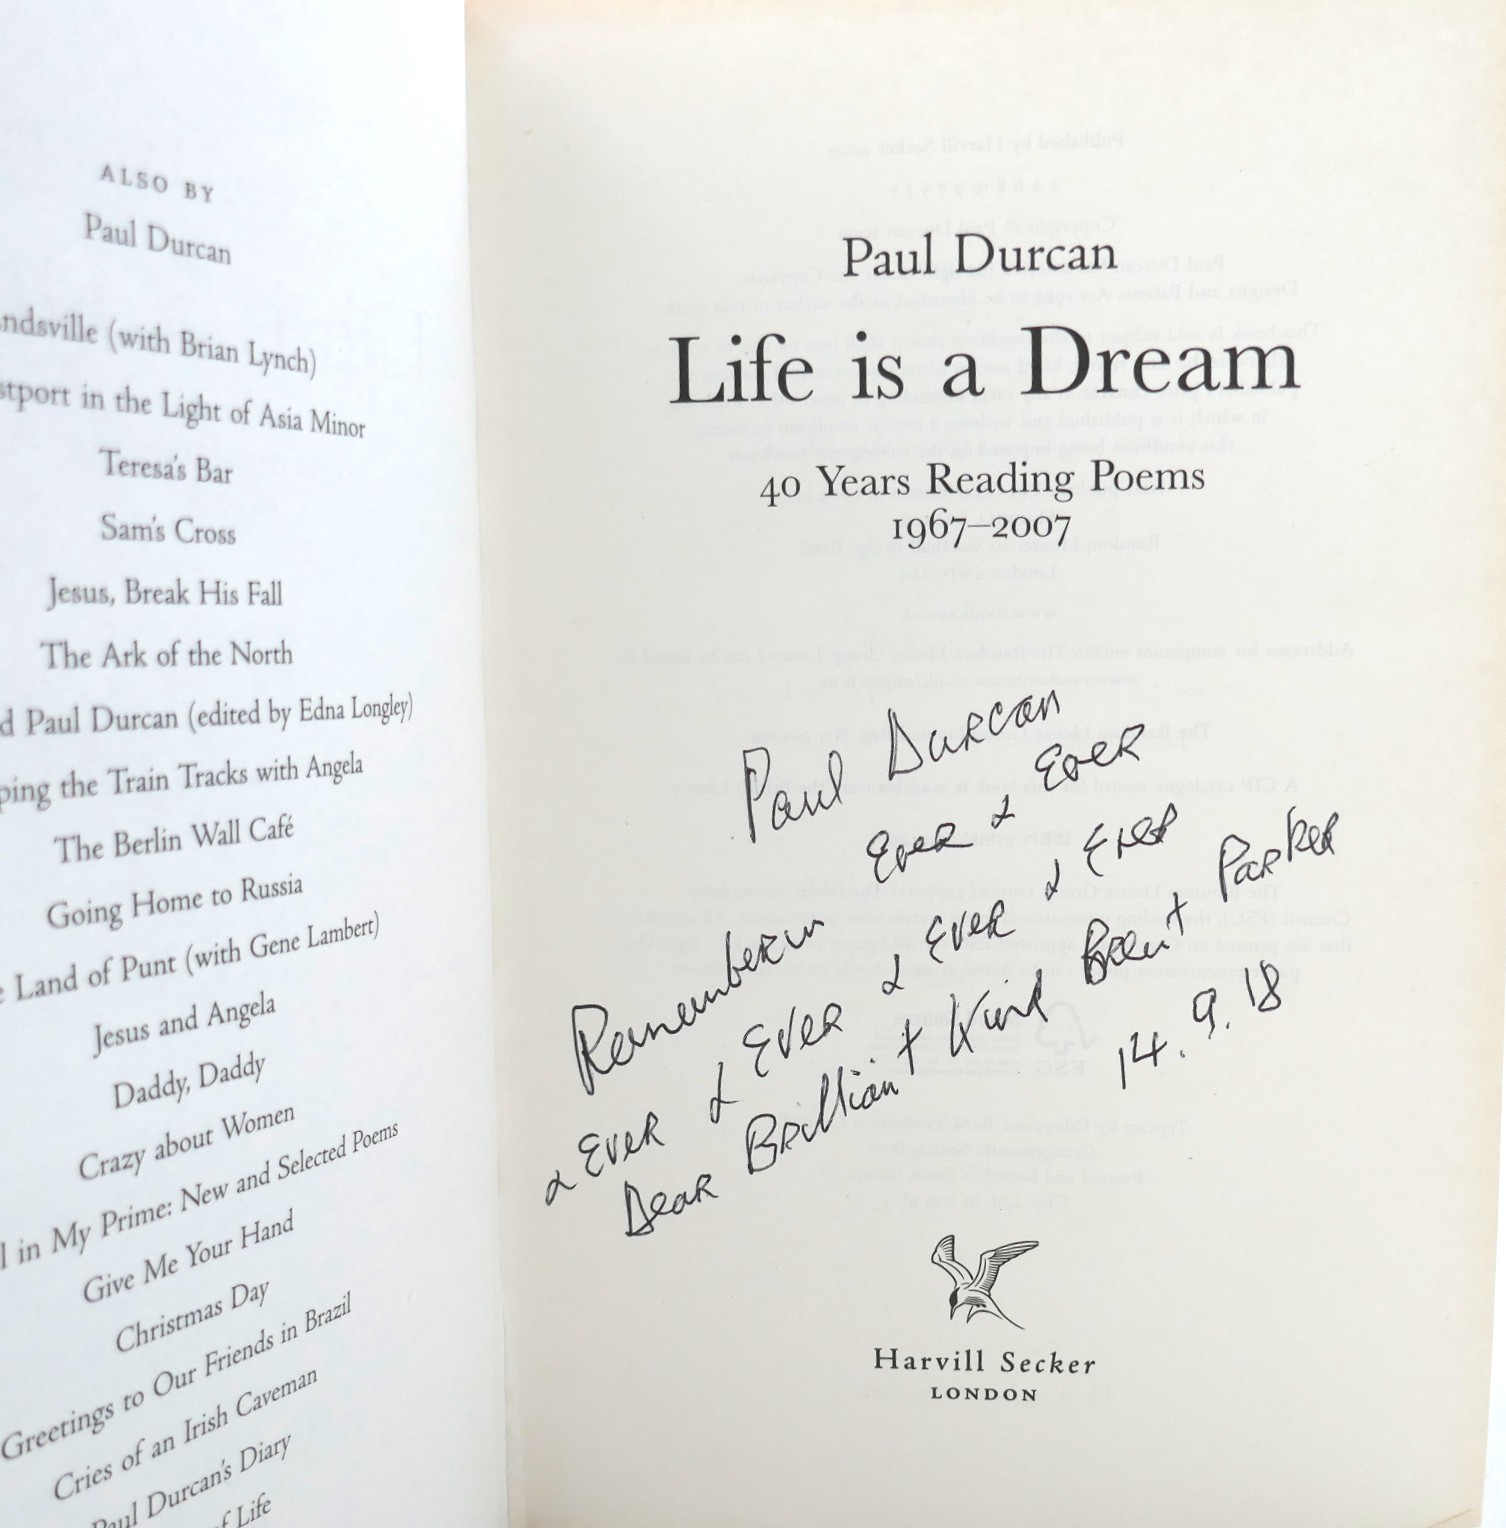 ALSO BY
Paul Durcan
ndsville (with Brian Lynch)
stport in the Light of Asia Minor
Teresa's Bar
Sam's Cross
Jesus, Break His Fall
The Ark of the North
d Paul Durcan (edited by Edna Longley)
ping the Train Tracks with Angela
The Berlin Wall Café
Going Home to Russia
e Land of Punt (with Gene Lambert)
Jesus and Angela
Daddy, Daddy
Crazy about Women
l in My Prime: New and Selected Poems
Give Me Your Hand
Christmas Day
Greetings to Our Friends in Brazil
Cries of an Irish Caveman
Paul Durcan's Diary
of Life
Paul Durcan
Life is a Dream
40 Years Reading Poems
1967–2007
Paul Durcan
Rememberin Ever & Ever
& Ever & Ever & Ever & Ever
Dear Brilliant Kind Brent Parker
14.9.18
Harvill Secker
LONDON